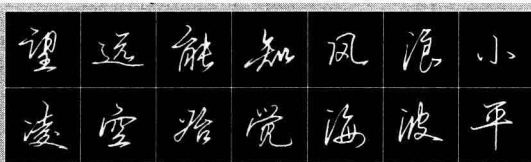 望远能知风浪小
凌空始觉海波平